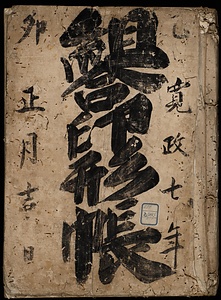 乙 寛政七年
印形帳
卯 正月吉日